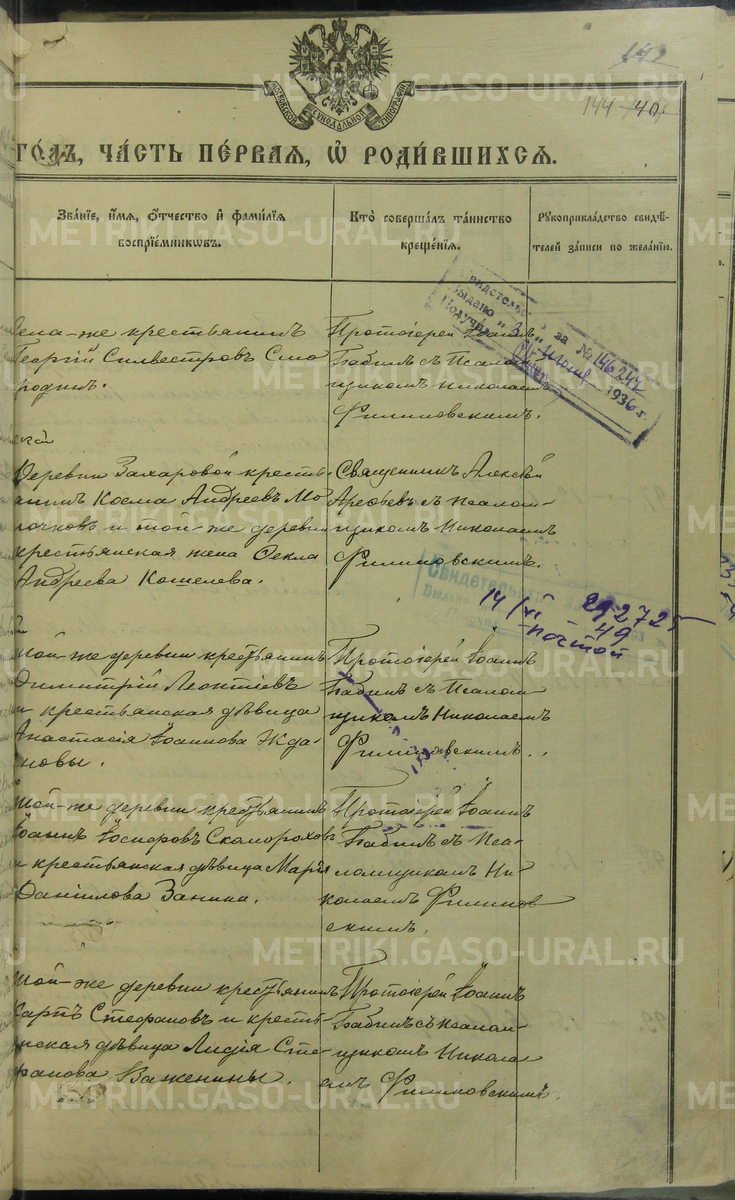 142
144
40
МОСКОВСКОЙ СѴНОДАЛЬНОЙ ТИПОГРАФІИ
ГО́ДЪ, ЧА́СТЬ ПЕ́РВАЯ, Ѡ҆ РОДИ́ВШИХСѦ.
Зва́нїе, и҆́мѧ, Ѻ҆́тчество и҆ фами́лїѧ воспрїе́мникѡвъ.
Кто̀ соверша́лъ та́инство креще́нїѧ.
Рꙋкоприкла́дство свидѣ́телей за́писи по жела́нїю.
села-же крестьянинъ
Георгій Сильвестровъ Смо
родинъ.
Протоіерей Іоаннъ
Бабинъ съ Псалом-
щикомъ Николаемъ
Филиповскимъ.
за № 146242
Выдано
1936 г.
Деревни Захаровой кресть-
янинъ Косма Андреевъ Мо
лочковъ и той-же деревни
крестьянская жена Ѳекла
Андреева Кошелева.
Священникъ Алексѣй
Арефьевъ съ псалом-
щикомъ Николаемъ
Филиповскимъ.
Свидетельство
Выдано
14/VI – 49
292725
почтой
той-же деревни крестьянинъ
Димитрій Леонтіевъ
и крестьянская дѣвица
Анастасія Іоаннова Жда-
новы.
Протоіерей Іоаннъ
Бабинъ съ Псалом-
щикомъ Николаемъ
Филиповскимъ.
той-же деревни крестьянинъ
Іоаннъ Іосифовъ Скомороховъ
и крестьянская дѣвица Марія
Даніилова Занина.
Протоіерей Іоаннъ
Бабинъ съ Пса-
ломщикомъ Ни-
колаемъ Филипов
скимъ.
той-же деревни крестьянинъ
Карпъ Стефановъ и кресть-
янская дѣвица Лидія Сте-
фанова Важенины.
Протоіерей Іоаннъ
Бабинъ съ псалом-
щикомъ Никола-
емъ Филиповскимъ.
METRIKI.GASO-URAL.RU
METRIKI.GASO-URAL.RU
METRIKI.GASO-URAL.RU
METRIKI.GASO-URAL.RU
METRIKI.GASO-URAL.RU
METRIKI.GASO-URAL.RU
METRIKI.GASO-URAL.RU
METRIKI.GASO-URAL.RU